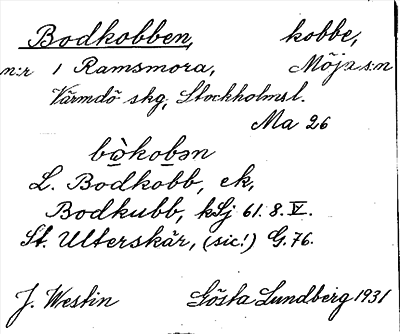 Bodkobben, kobbe,
n:r 1 Ramsmora, Möja s:n
Värmdö skg, Stockholmsl.
Ma 26
bὼkobən
L. Bodkobb, ek,
Bodkubb, kSj 61.8.V.
St. Ulterskär, (sic!) G.76.
J. Westin Gösta Lundberg 1931